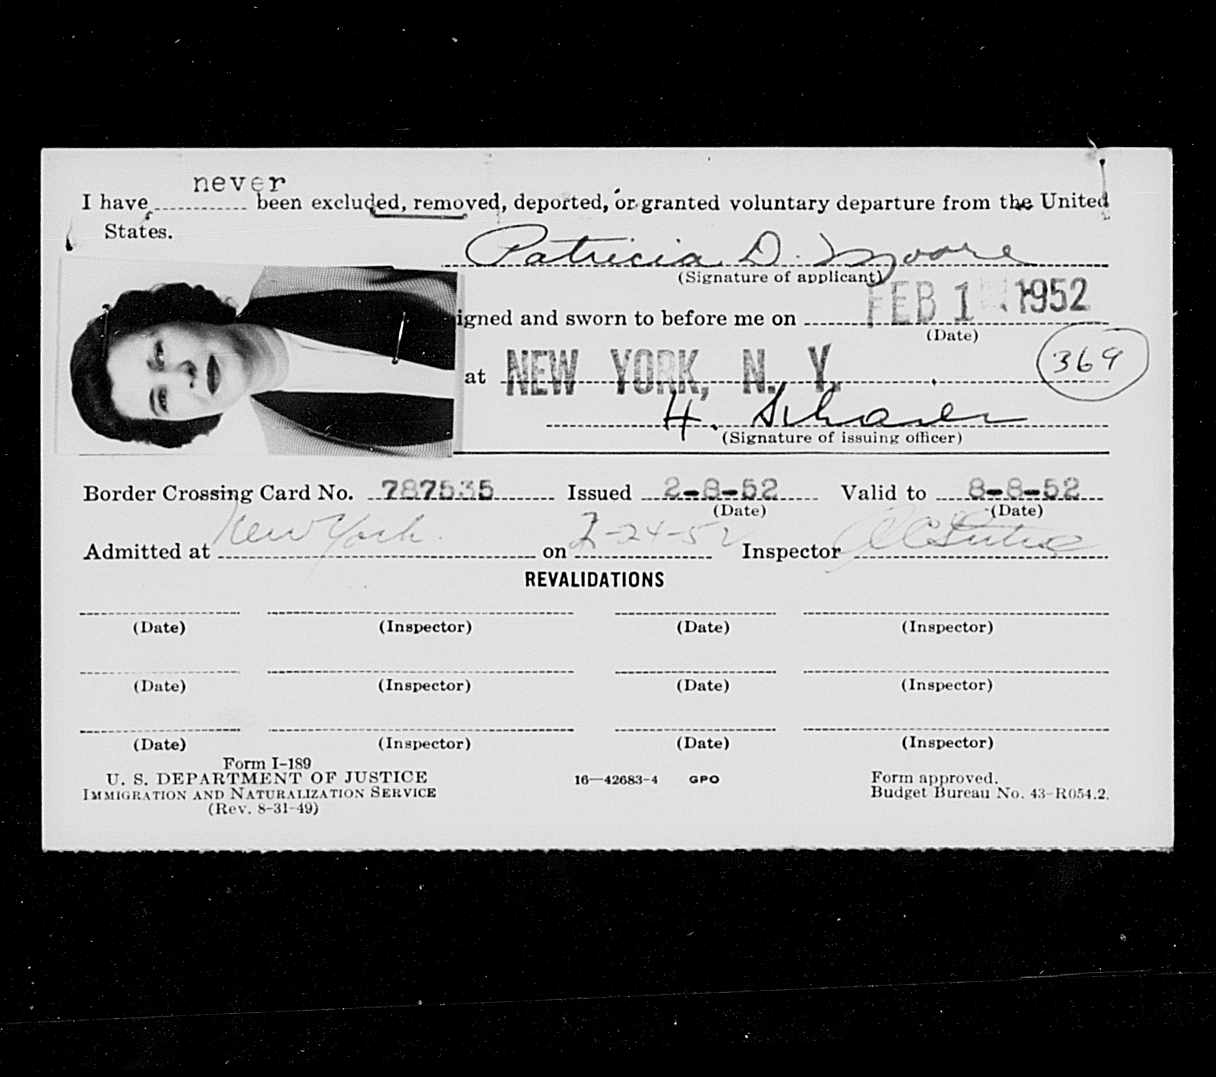 never
I have been excluded, removed, deported, or granted voluntary departure from the United
States.
Patricia D. Moore
(Signature of applicant)
igned and sworn to before me on FEB 1 1952
(Date)
at NEW YORK, N. Y.
369
H.
(Signature of issuing officer)
Border Crossing Card No. 787535 Issued 2-8-52 Valid to 8-8-52
(Date) (Date)
Admitted at New York. on 2-24-52 Inspector
REVALIDATIONS
(Date) (Inspector) (Date) (Inspector)
(Date) (Inspector) (Date) (Inspector)
(Date) (Inspector) (Date) (Inspector)
Form I-189
U. S. DEPARTMENT OF JUSTICE
IMMIGRATION AND NATURALIZATION SERVICE
(Rev. 8-31-49)
16—42683-4 GPO
Form approved.
Budget Bureau No. 43-R054.2.